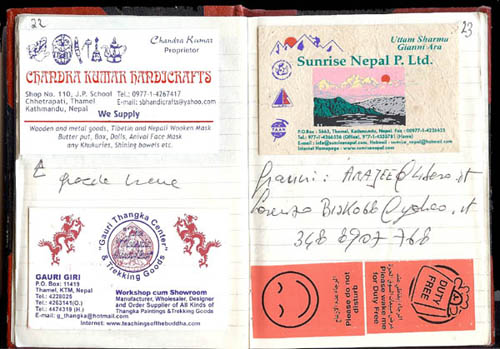 22
Chandra Kumar
Proprietor
CHANDRA KUMAR HANDICRAFTS
Shop No. 110, J.P. School
Chhetrapati, Thamel
Kathmandu, Nepal
Tel.: 0977-1-4267417
E-mail: sbhandicrafts@yahoo.com
We Supply
Wooden and metal goods, Tibetin and Nepali Wooken Mask
Butter put, Box, Dolls, Anival Face Mask
any Khukuries, Shining bowels etc.
"Gauri Thangka Center"
& Trekking Goods
GAURI GIRI
P.O. Box: 11419
Thamel, KTM, Nepal
Tel.: 4228026
Tel.: 4263141(O.)
Tel.: 4474319 (H.)
E-mail: g_thangka@hotmail.com
Workshop cum Showroom
Manufacturer, Wholesaler, Designer
and Order Supplier of All Kinds of
Thangka Paintings & Trekking Goods
Internet: www.teachingsofthebuddha.com
23
Uttam Sharma
Gianni Ara
Sunrise Nepal P. Ltd.
TAAN
P.O.Box : 5663, Thamel, Kathmandu, Nepal, Fax : 00977-1-4226625
E-mail : info@sunrisenepal.com
Internet Homepage : www.sunrisenepal.com
Gianni :
348 8907 768
Please do not
disturb
Please wake me
for Duty Free
DUTY
FREE